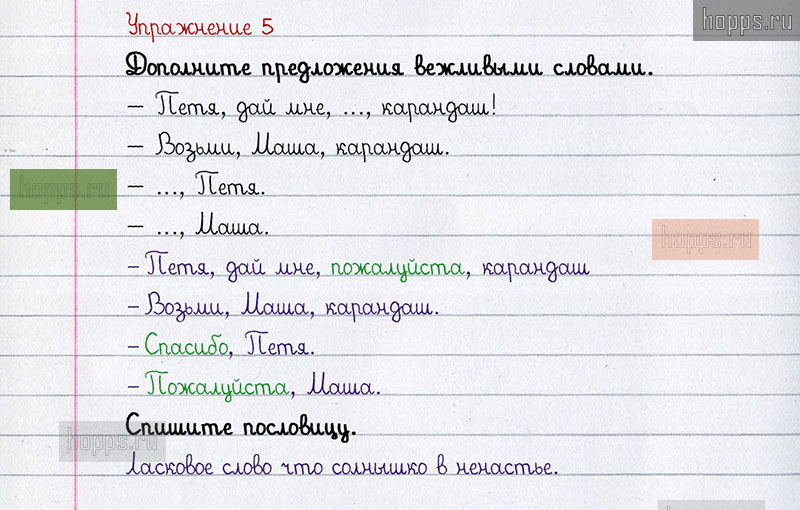 Упражнение 5
hopps.ru
Дополните предложения вежливыми словами.
– Петя, дай мне, ..., карандаш!
– Возьми, Маша, карандаш.
hopps.ru
– ..., Петя.
– ..., Маша.
hopps.ru
- Петя, дай мне, пожалуйста, карандаш
- Возьми, Маша, карандаш.
- Спасибо, Петя.
- Пожалуйста, Маша.
Спишите пословицу.
hopps.ru
Ласковое слово что солнышко в ненастье.